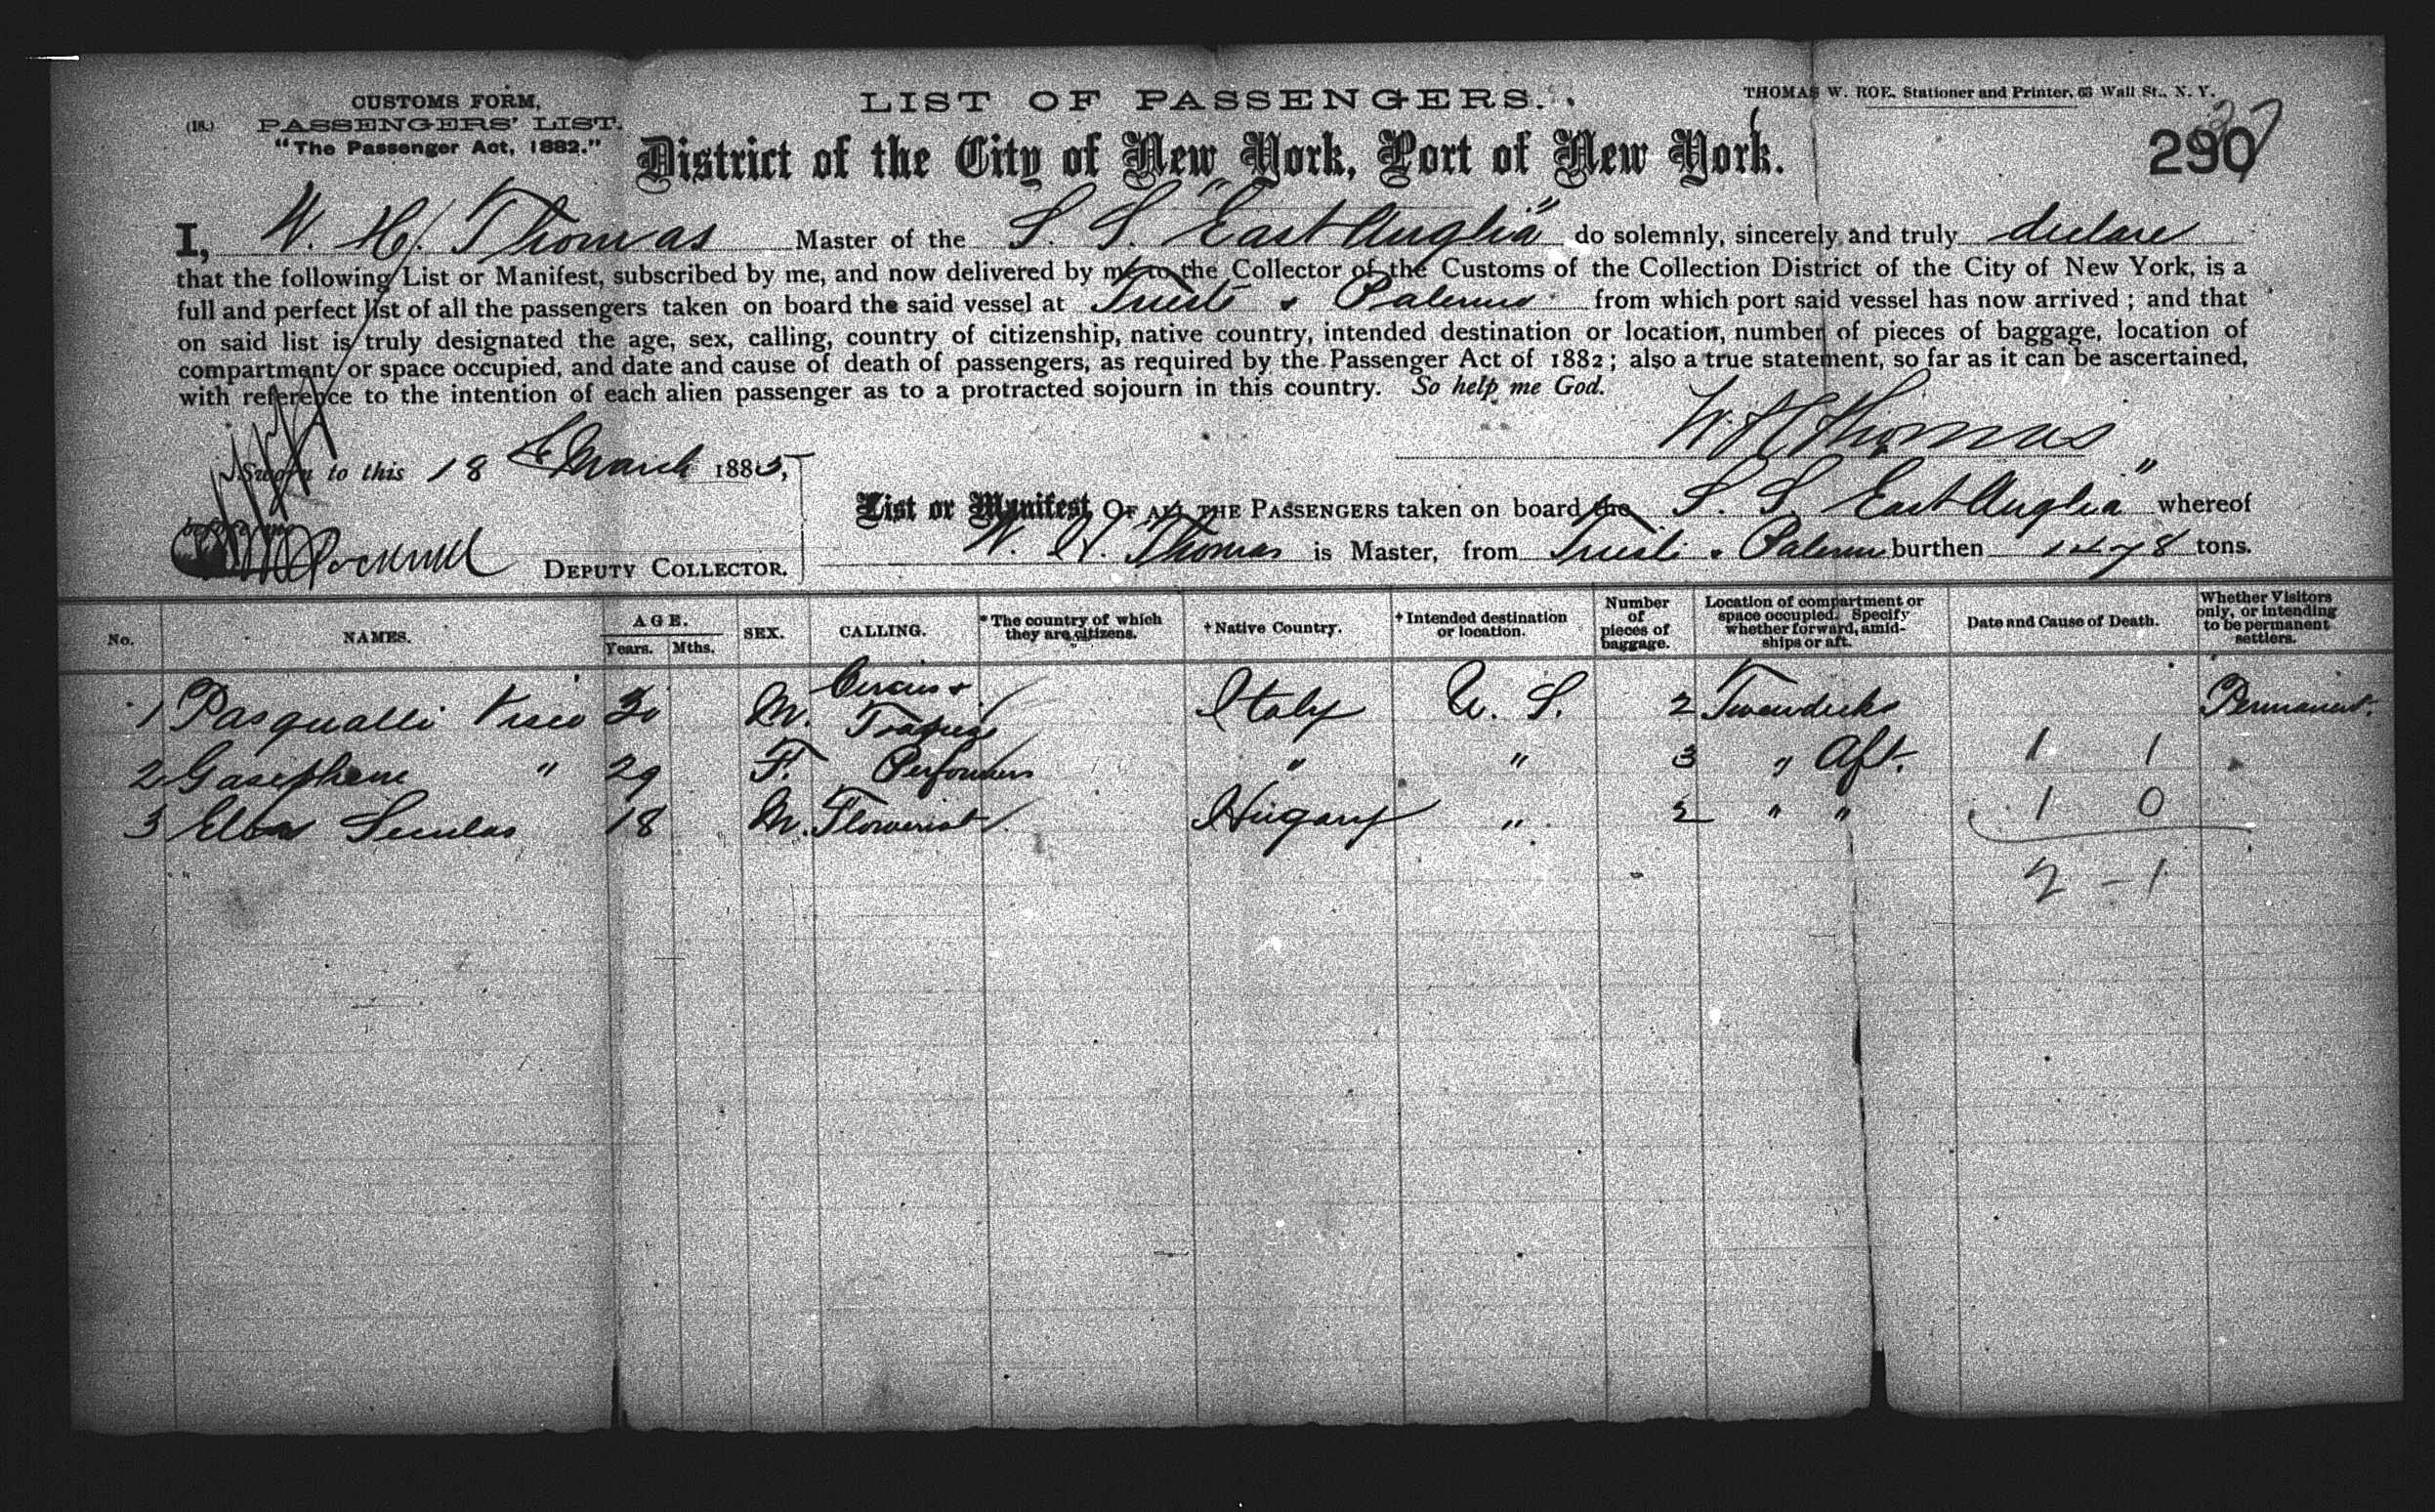 CUSTOMS FORM,
(18.) PASSENGERS' LIST.
"The Passenger Act, 1882."
LIST OF PASSENGERS.
THOMAS W. ROE, Stationer and Printer, 63 Wall St., N. Y.
District of the City of New York, Port of New York.
290
I, W. H. Thomas Master of the S. S. "East Anglia" do solemnly, sincerely and truly declare
that the following List or Manifest, subscribed by me, and now delivered by me to the Collector of the Customs of the Collection District of the City of New York, is a
full and perfect list of all the passengers taken on board the said vessel at Triest & Palermo from which port said vessel has now arrived; and that
on said list is truly designated the age, sex, calling, country of citizenship, native country, intended destination or location, number of pieces of baggage, location of
compartment or space occupied, and date and cause of death of passengers, as required by the Passenger Act of 1882; also a true statement, so far as it can be ascertained,
with reference to the intention of each alien passenger as to a protracted sojourn in this country. So help me God.
W. H. Thomas
Sworn to this 18 March 1885,
List or Manifest, OF ALL THE PASSENGERS taken on board the S. S. East Anglia" whereof
W. H. Thomas is Master, from Triest & Palermo burthen 1478 tons.
DEPUTY COLLECTOR.
No. NAMES. AGE. Years. Mths. SEX. CALLING. *The country of which they are citizens. †Native Country. †Intended destination or location. Number of pieces of baggage. Location of compartment or space occupied. Specify whether forward, amidships or aft. Date and Cause of Death. Whether Visitors only, or intending to be permanent settlers.
1 Pasqualli Visco 30 M. Circus & Trapeze Italy U. S. 2 Tweendecks Permanent.
2 Gasephene " 29 F. Performers " " 3 " Aft. 1 1 "
3 18 M. Flowerist Hugary " 2 " " 1 0
2 - 1